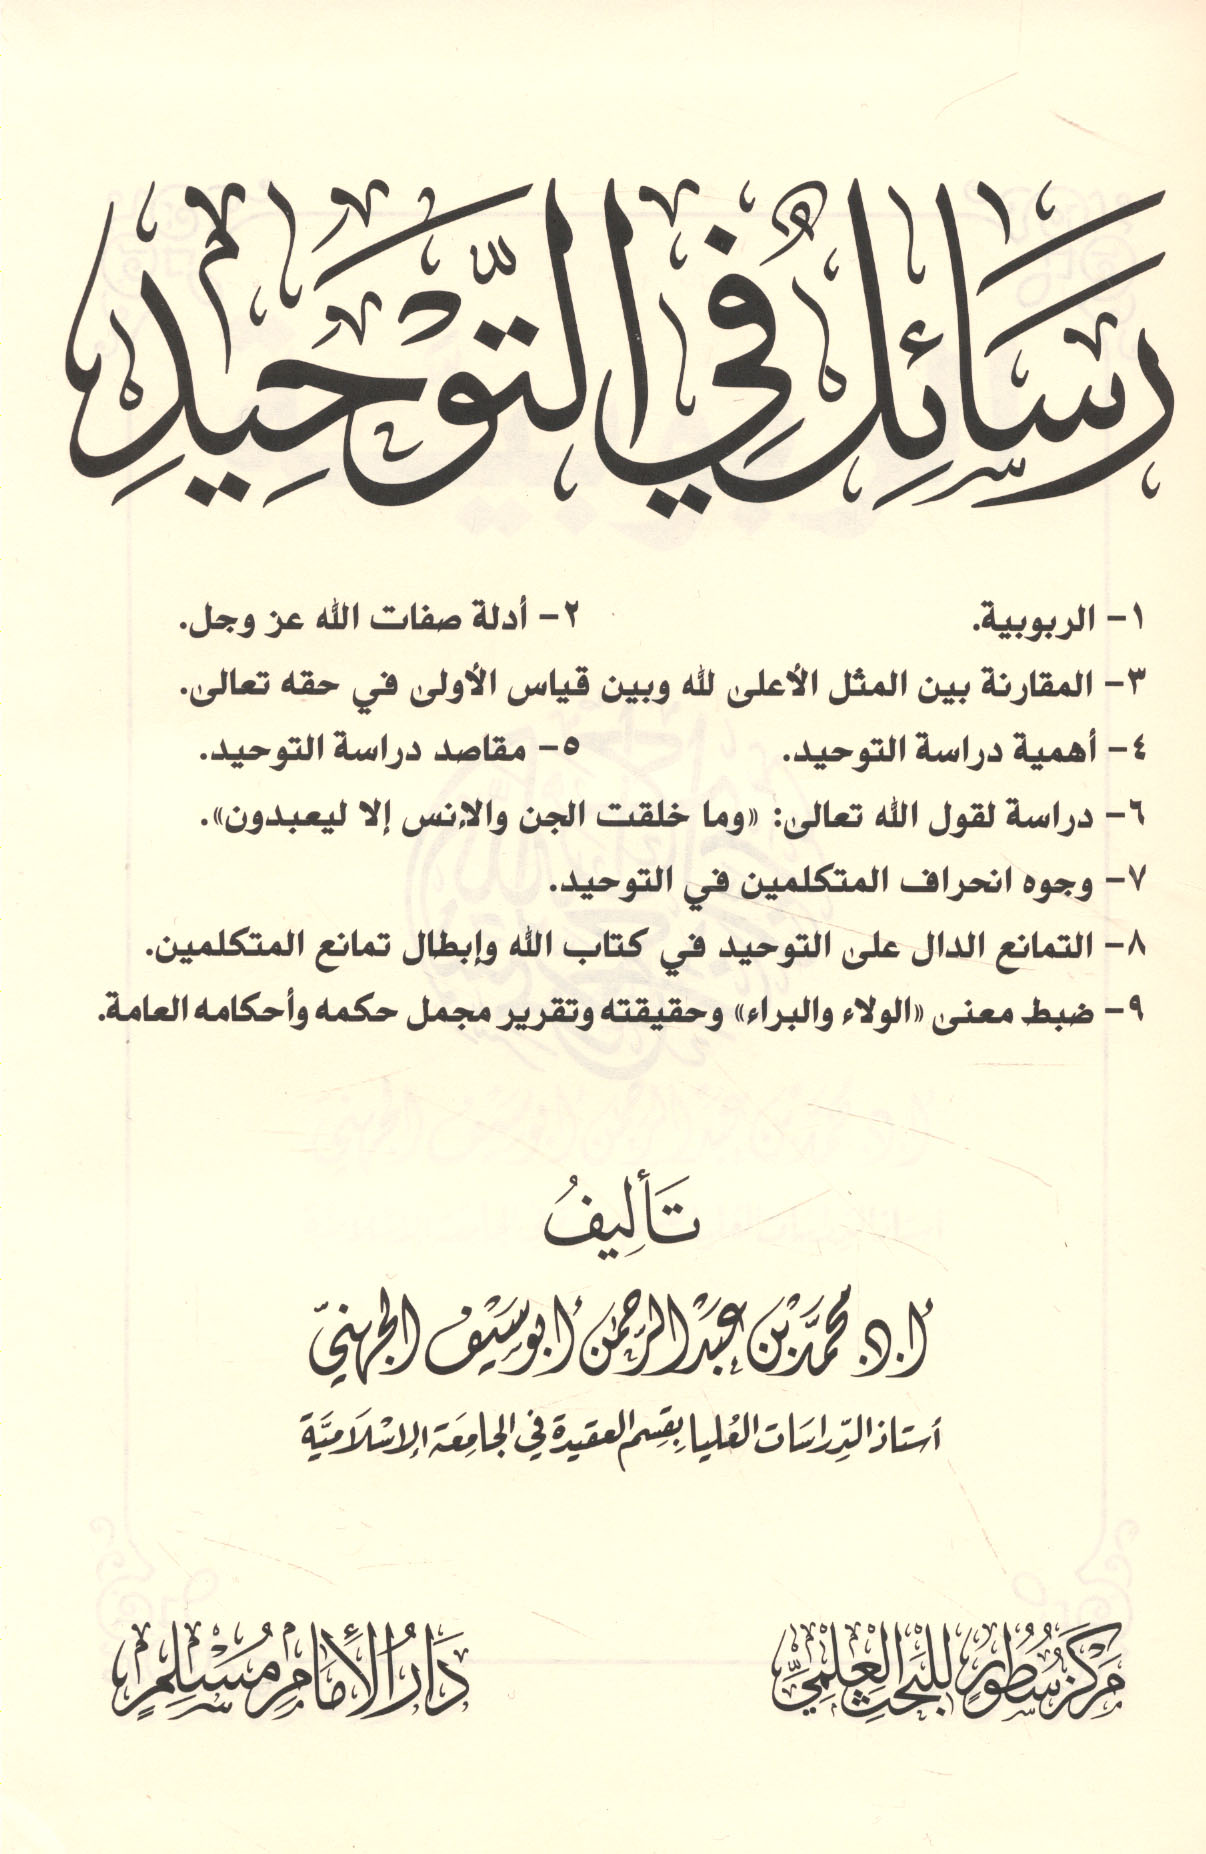 رَسَائِلُ فِي التَّوْحِيدِ
١- الربوبية. ٢- أدلة صفات الله عز وجل.
٣- المقارنة بين المثل الأعلى لله وبين قياس الأولى في حقه تعالى.
٤- أهمية دراسة التوحيد. ٥- مقاصد دراسة التوحيد.
٦- دراسة لقول الله تعالى: «وما خلقت الجن والإنس إلا ليعبدون».
٧- وجوه انحراف المتكلمين في التوحيد.
٨- التمانع الدال على التوحيد في كتاب الله وإبطال تمانع المتكلمين.
٩- ضبط معنى «الولاء والبراء» وحقيقته وتقرير مجمل حكمه وأحكامه العامة.
تَأليفُ
أ.د. محمَّد بْن عَبْد الرحمن أبو سَيْف الجهنيّ
أستاذ الدِّراسَات العُليا بقِسم العقيدة في الجامِعَة الإسْلَاميَّة
مَركز سُطُور للبَحث العِلمِيّ
دَارُ الإمَامِ مُسْلِمٍ